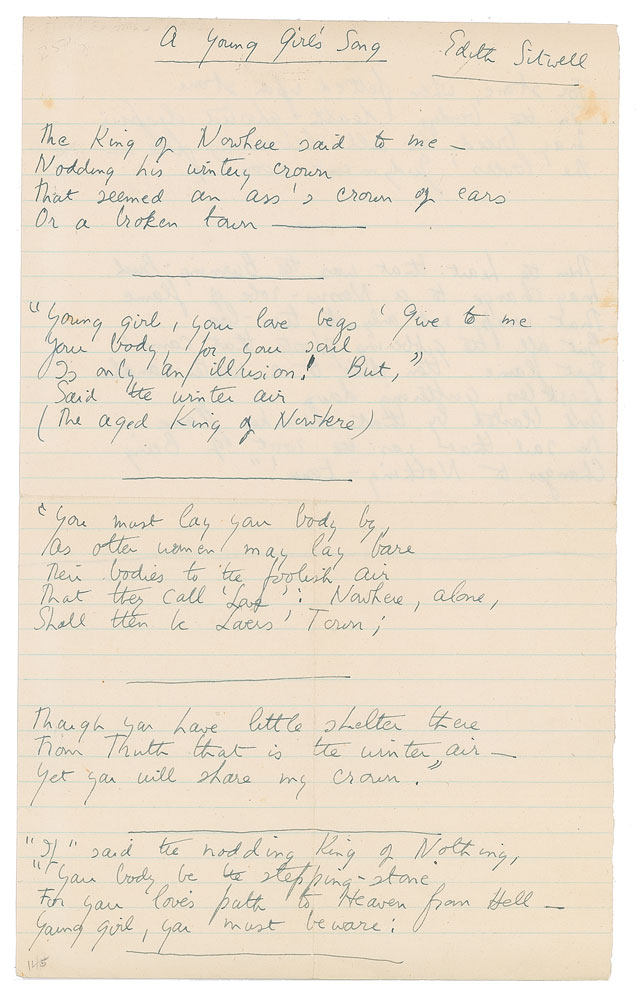 A Young Girl's Song
Edith Sitwell
The King of Nowhere said to me —
Nodding his wintry crown
That seemed an ass's crown of ears
Or a broken town ———
"Young girl, your love begs 'Give to me
Your body, for your soul
Is only an illusion! But,"
Said the winter air
(The aged King of Nowhere)
"You must lay your body by,
As other women may lay bare
Their bodies to the foolish air
That they call 'Love': Nowhere, alone,
Shall then be Lovers' Town;
Though you have little shelter there
From Truth that is the winter air —
Yet you will share my crown."
"If" said the nodding King of Nothing,
"Your body be the stepping-stone
For your love's path to Heaven from Hell —
Young girl, you must beware:
145